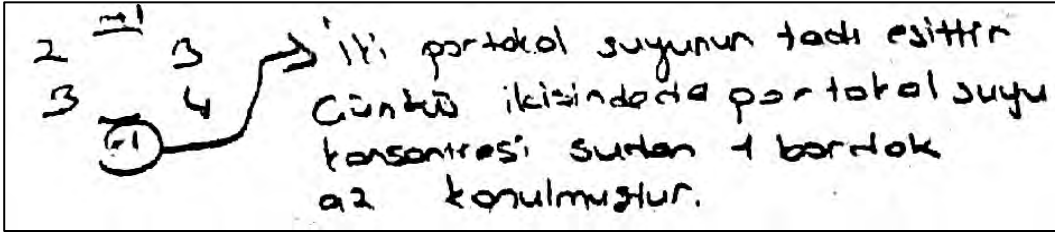 2 -1 3
3 4
-1
İki portakal suyunun tadı eşittir
Çünkü ikisindede portakal suyu
konsantresi sudan 1 bardak
az konulmuştur.